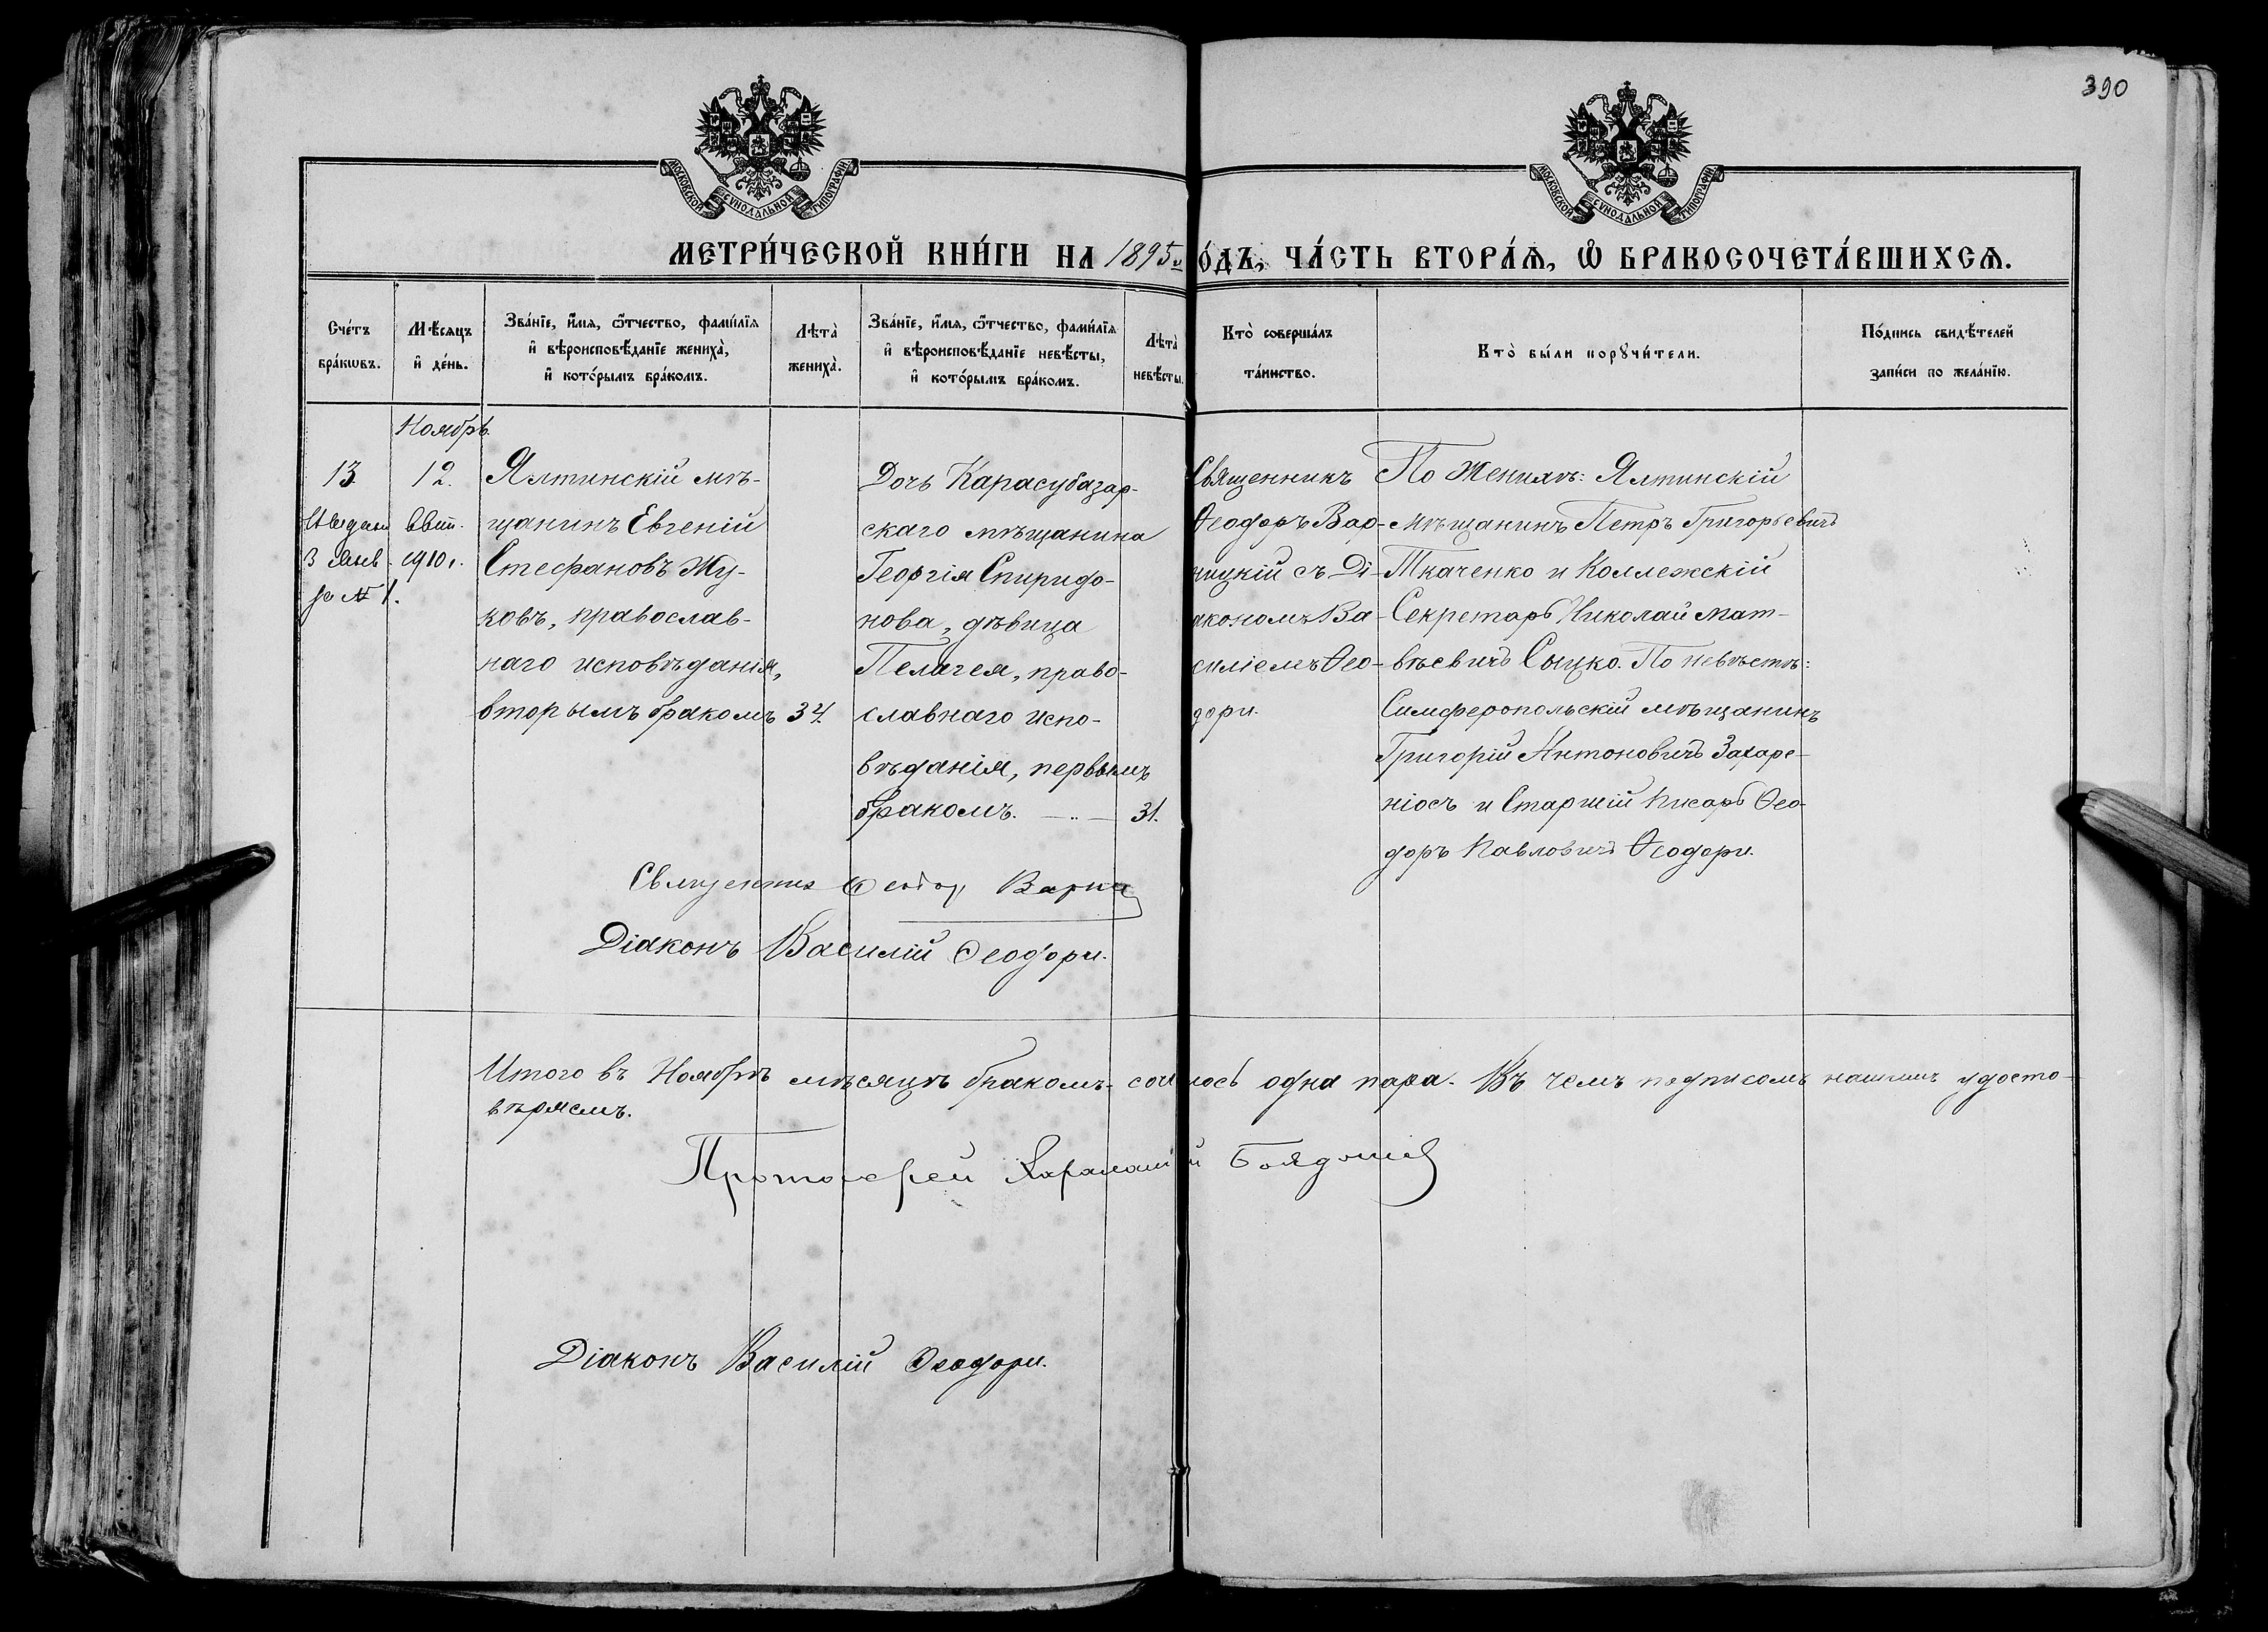 390
МОСКОВСКОЙ СУНОДАЛЬНОЙ ТИПОГРАФIИ
МОСКОВСКОЙ СУНОДАЛЬНОЙ ТИПОГРАФIИ
МЕТРИ́ЧЕСКОЙ КНИ́ГИ НА 1895й
О́ДЪ, ЧА́СТЬ ВТОРА́Ѧ, Ѽ БРАКОСОЧЕТА́ВШИХСѦ.
Сче́тъ
бра́кѡвъ.
Мѣ́сяцъ
и҆ де́нь.
Зва́нїе, и҆́мѧ, ѻ҆́тчество, фами́лїѧ
и҆ вѣроисповѣ́данїе жениха̀,
и҆ кото́рымъ бра́комъ.
Лѣта̀
жениха̀.
Зва́нїе, и҆́мѧ, ѻ҆́тчество, фами́лїѧ
и҆ вѣроисповѣ́данїе невѣ́сты,
и҆ кото́рымъ бра́комъ.
Лѣта̀
невѣ́сты.
Кто̀ соверша́лъ
та́инство.
Кто̀ бы́ли порꙋчи́тели.
По́дпись свидѣ́телей
за́писи по жела́нїю.
13
3
№ 1.
Ноябрь.
12.
1910 г.
Ялтинскій мѣ-
щанинъ Евгеній
Стефановъ Жу-
ковъ, православ-
наго исповѣданія,
вторымъ бракомъ
34
Дочь Карасубазар-
скаго мѣщанина
Георгія Спиридо-
нова, дѣвица
Пелагея, право-
славнаго испо-
вѣданія, первымъ
бракомъ.
31.
Священникъ
Ѳеодоръ Вар-
ницкій съ Ді-
акономъ Ва-
силіемъ Ѳео-
дори.
По женихѣ: Ялтинскій
мѣщанинъ Петръ Григорьевичъ
Ткаченко и Коллежскій
Секретарь Николай Мат-
вѣевичъ Сыцко. По невѣстѣ:
Симферопольскій мѣщанинъ
Григорій Антоновичъ Захаре-
ніосъ и Старшій писарь Ѳео-
доръ Павловичъ Ѳеодори.
Священникъ Ѳеодор
Діаконъ Василій Ѳеодори.
Итого въ Ноябрѣ мѣсяцѣ бракомъ одна пара. Въ чемъ подписомъ нашимъ удосто-
вѣряемъ.
Протоіерей Харалампій
Діаконъ Василій Ѳеодори.